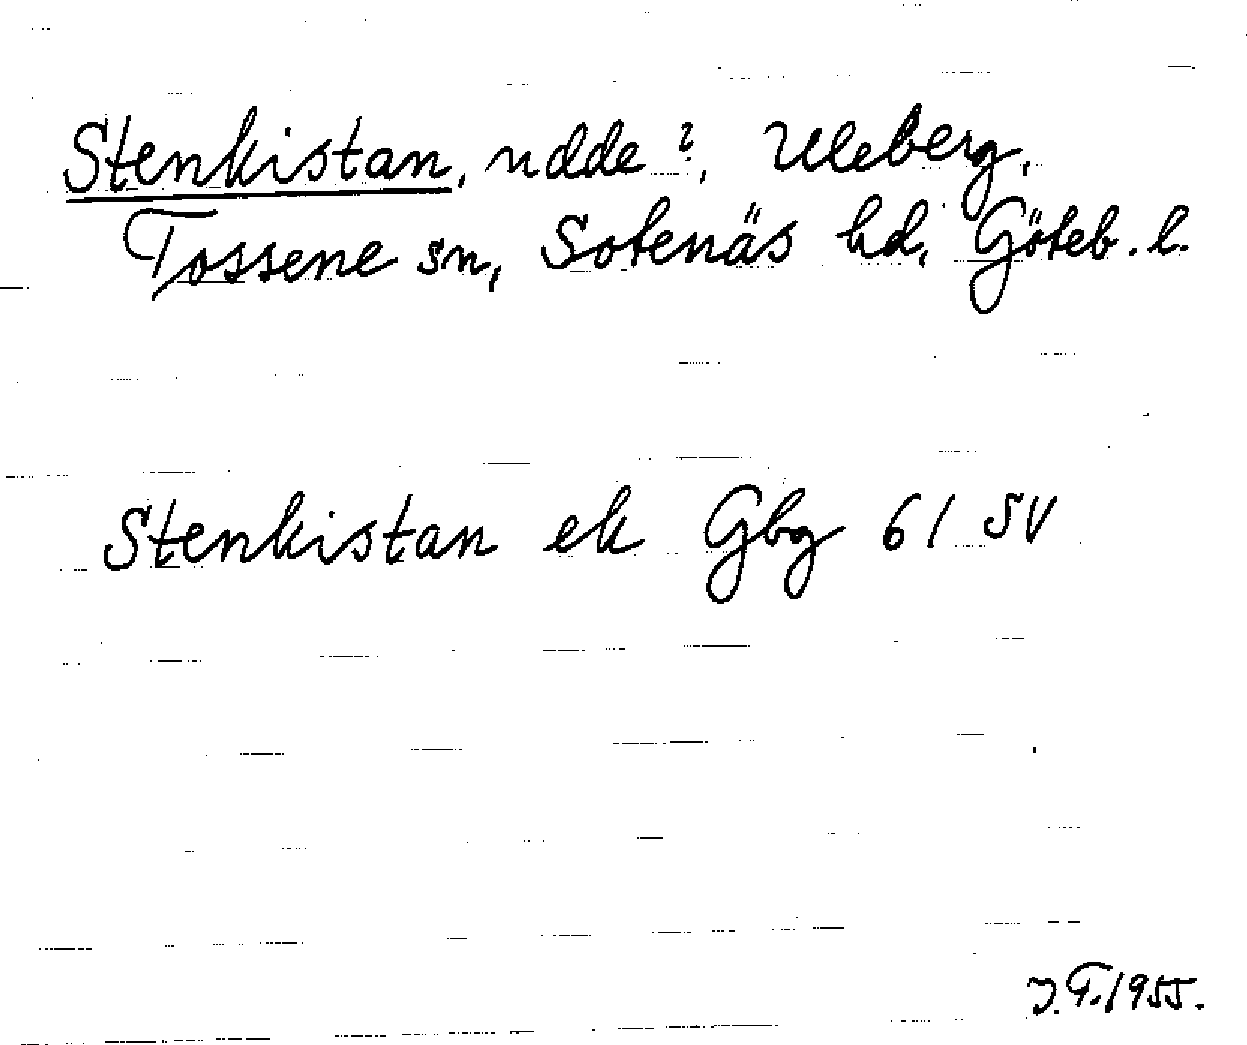 Stenkistan, udde?, Uleberg,
Tossene sn, Sotenäs hd, Göteb. l.
Stenkistan ek Gbg 61 SV
J.T. 1955.